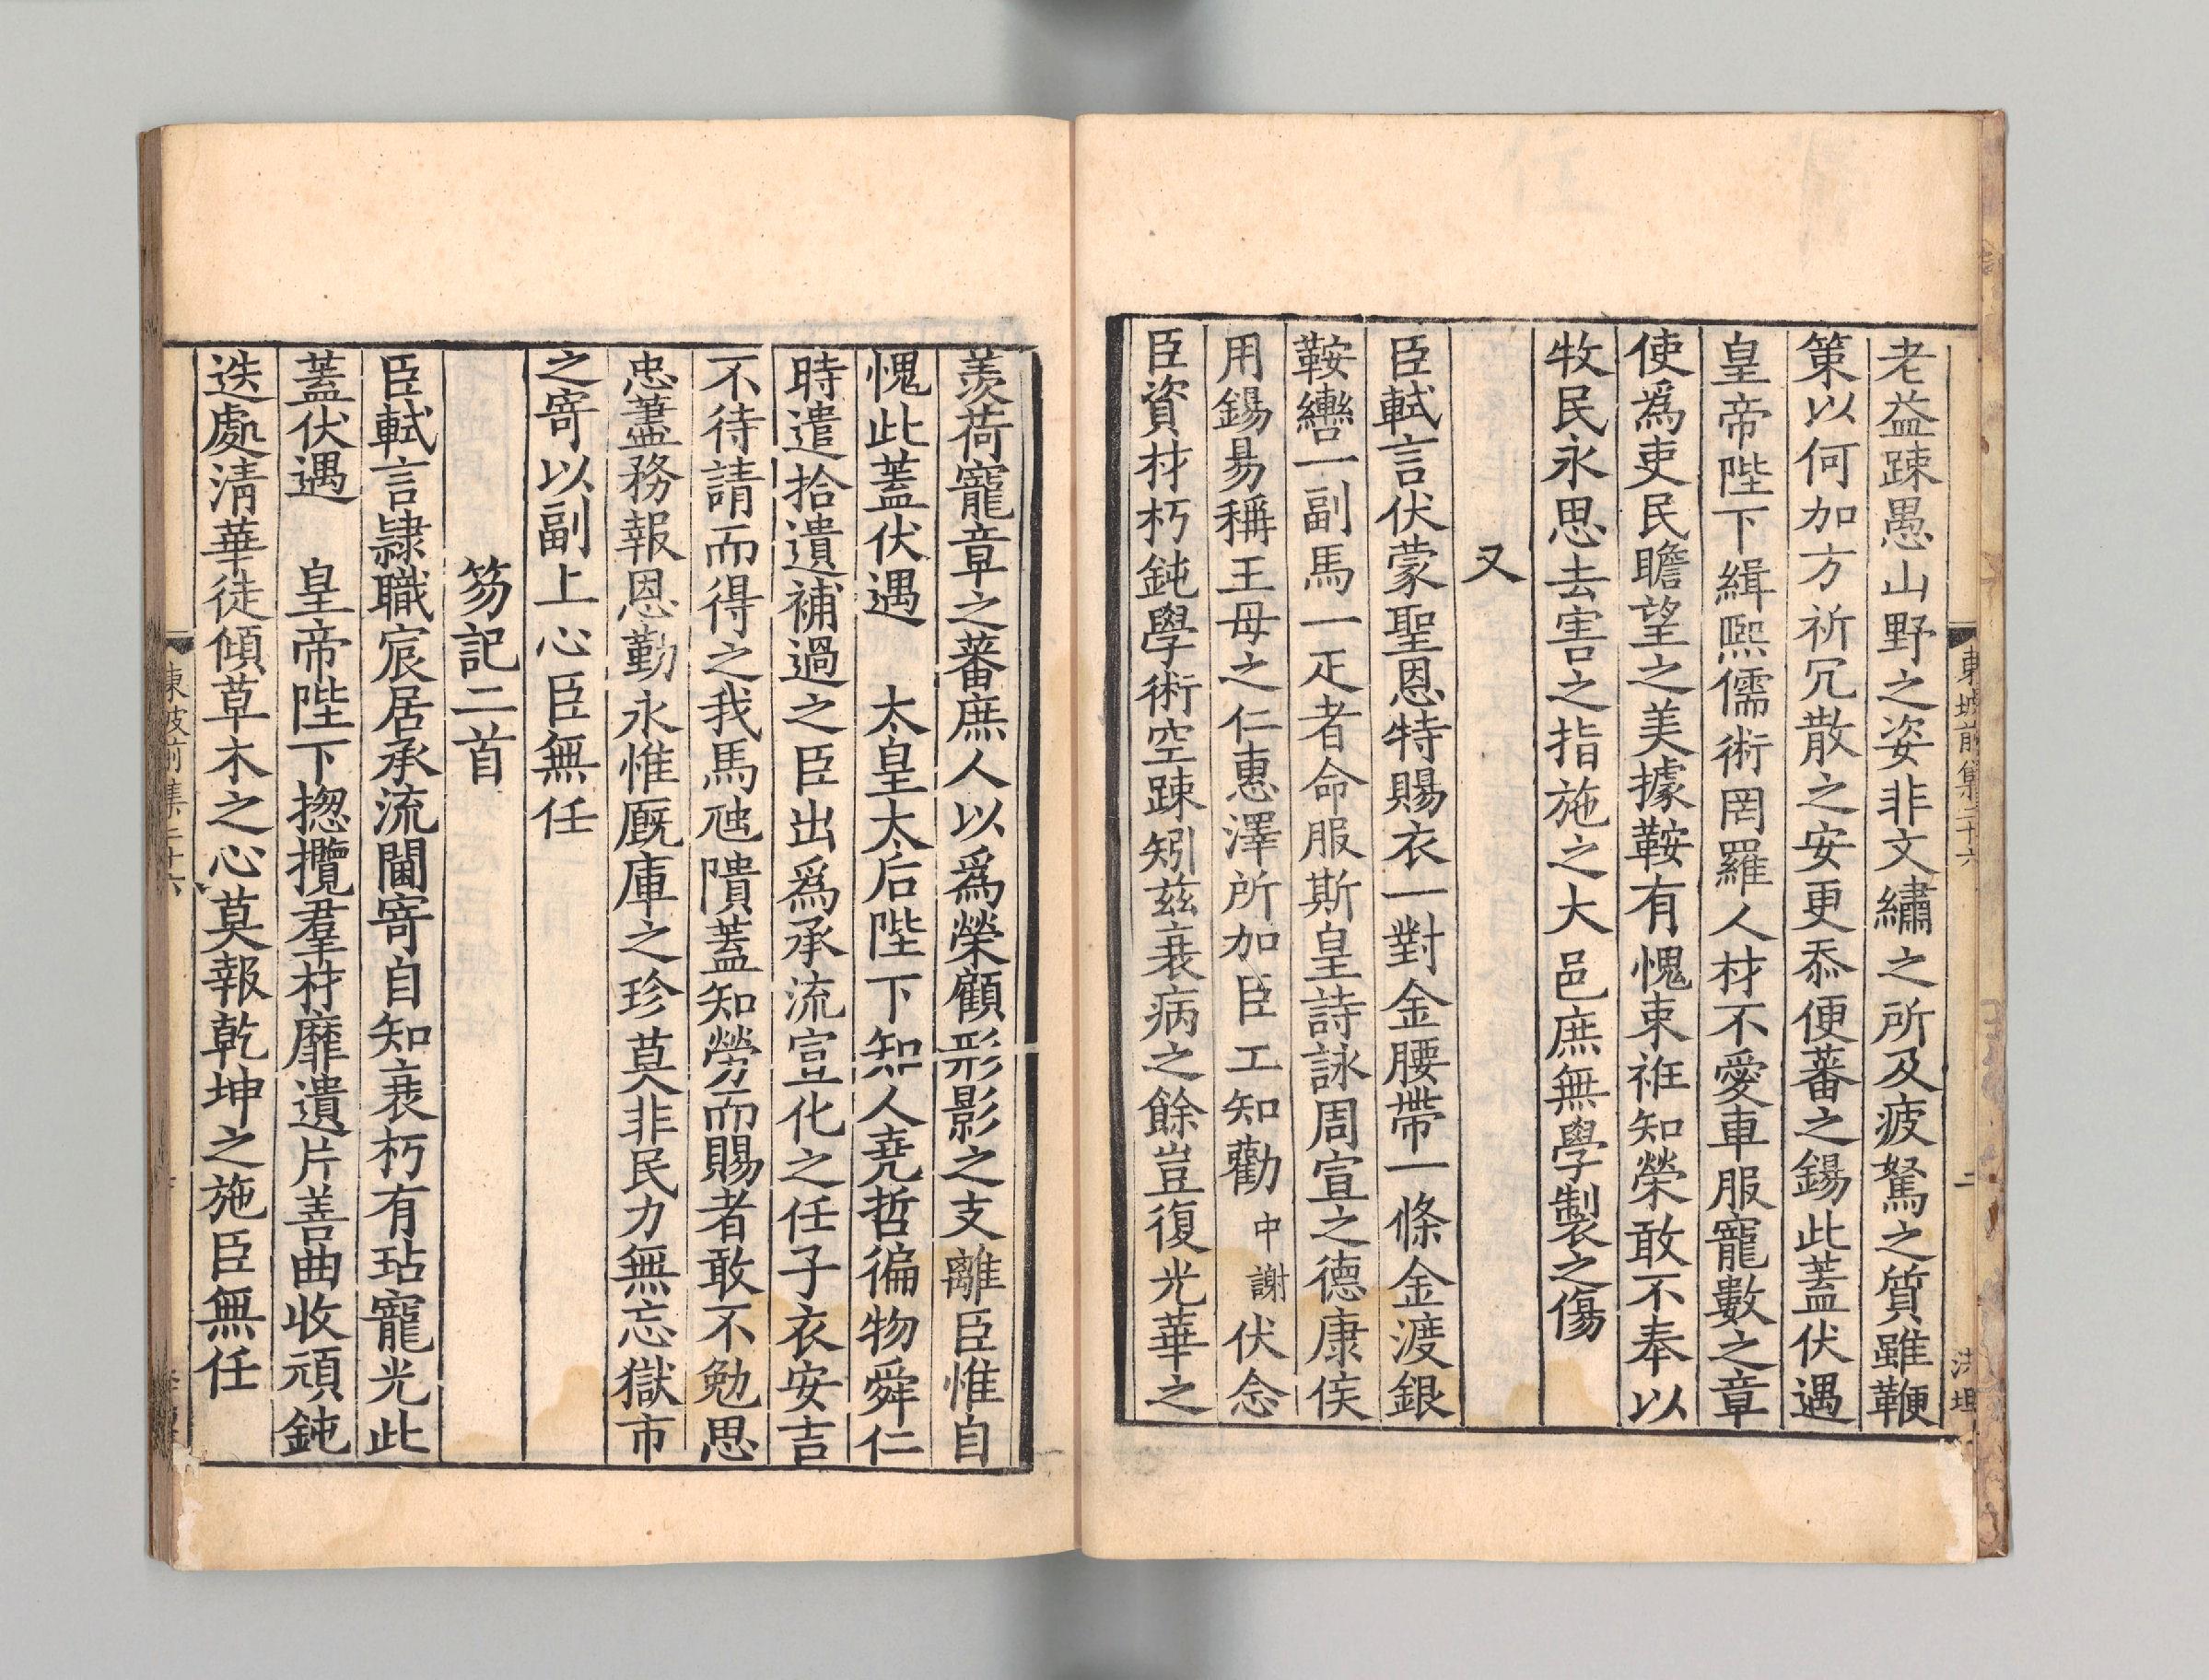 老益踈愚山野之姿非文繡之所及疲駑之質雖鞭
策以何加方祈冗散之安更忝便蕃之錫此蓋伏遇
皇帝陛下緝熈儒術罔羅人材不愛車服寵數之章
使爲吏民瞻望之美據鞍有愧束袵知榮敢不奉以
牧民永思去害之指施之大邑庶無學製之傷
又
臣軾言伏蒙聖恩特賜衣一對金腰帶一條金渡銀
鞍轡一副馬一疋者命服斯皇詩詠周宣之德康侯
用錫易稱王母之仁惠澤所加臣工知勸中謝伏念
臣資材朽鈍學術空踈矧茲衰病之餘豈復光華之
東坡前集二十六
二
羨荷寵章之蕃庶人以爲榮顧形影之支離臣惟自
愧此蓋伏遇 太皇太后陛下知人堯哲徧物舜仁
時遣拾遺補過之臣出爲承流宣化之任子衣安吉
不待請而得之我馬虺隤蓋知勞而賜者敢不勉思
忠藎務報恩勤永惟厩庫之珍莫非民力無忘獄市
之寄以副上心臣無任
笏記二首
臣軾言隷職宸居承流閫寄自知衰朽有玷寵光此
蓋伏遇 皇帝陛下揔攬羣材靡遺片善曲收頑鈍
迭處清華徒傾草木之心莫報乾坤之施臣無任
東坡前集二十六